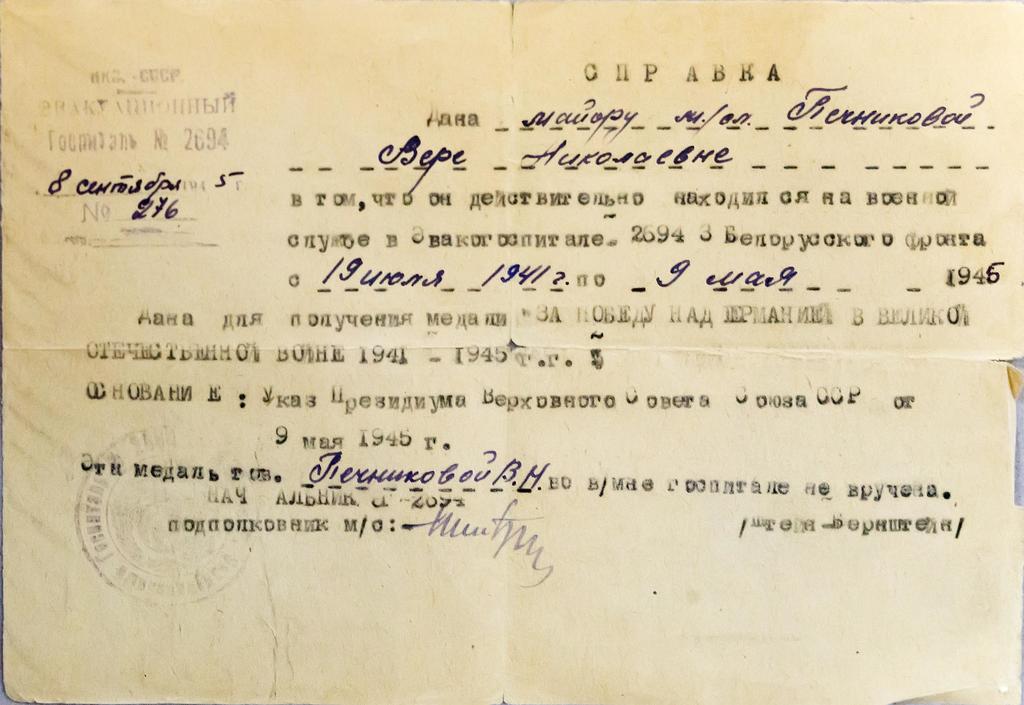 НКЗ. - СССР.
ЭВАКУАЦИОННЫЙ
Госпиталь № 2694
8 сентября 194 5 г
№ 276
СПРАВКА
Дана майору м/сл. Печниковой
Вере Николаевне
в том, что он действительно находился на военной
службе в Эвакогоспитале. 2694 3 Белорусского фронта
с 19 июля 1941 г. по 9 мая 1945
Дана для получения медали "ЗА ПОБЕДУ НАД ГЕРМАНИЕЙ В ВЕЛИКОЙ
ОТЕЧЕСТВЕННОЙ ВОЙНЕ 1941 - 1945 г.г."
ОСНОВАНИЕ: Указ Президиума Верховного Совета Союза ССР от
9 мая 1945 г.
Эта медаль тов. Печниковой В.Н. во в/мне госпитале не вручена.
НАЧАЛЬНИК 2694
подполковник м/с:-
/Штейн-Бернштейн/